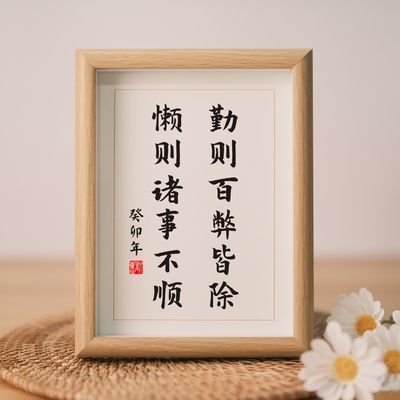 勤则百弊皆除
懒则诸事不顺
癸卯年